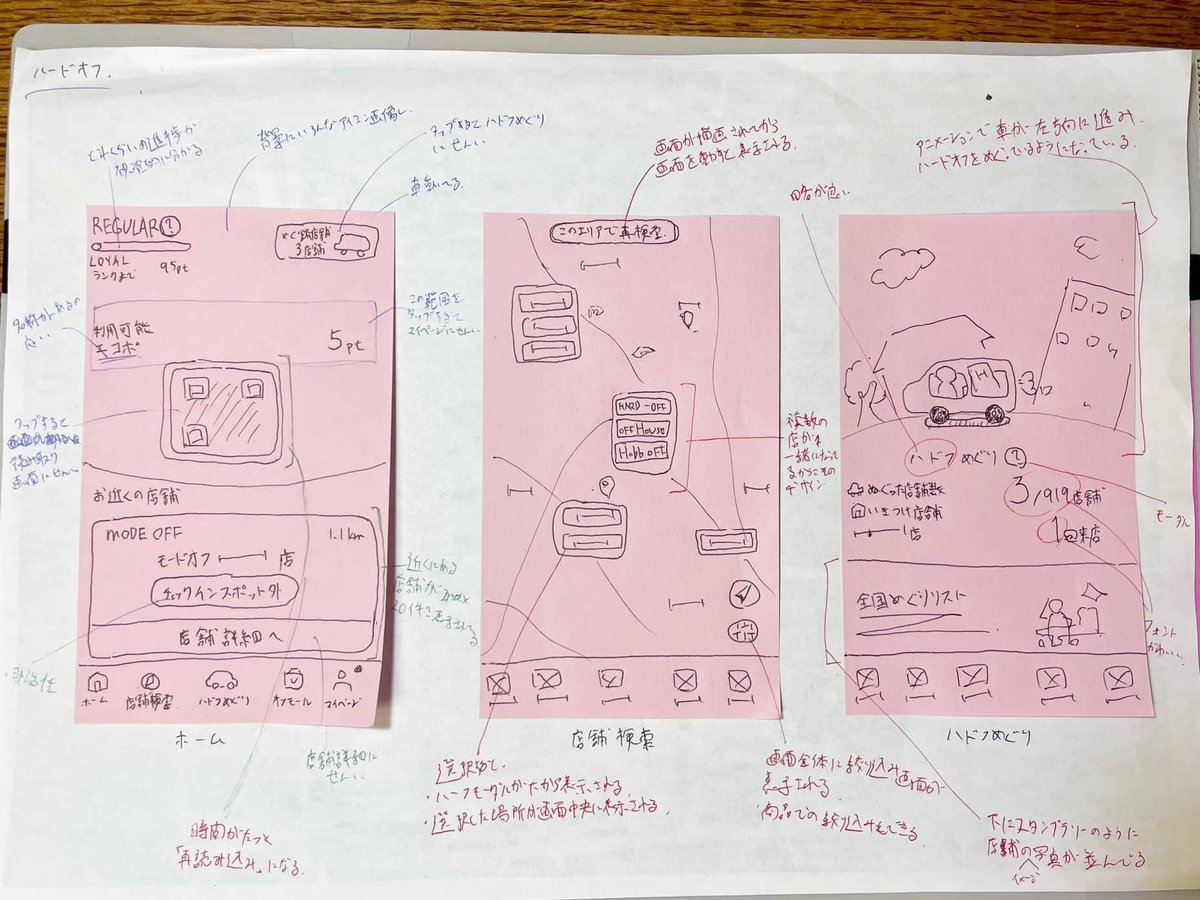 ハードオフ.
どれくらいの進捗か
視覚的に分かる
背景にいろんなアイコン画像
タップするとハドフめぐり
にせんい
車動いてる
REGULAR?
LOYAL
ランクまで 95pt
めぐり店舗
3店舗
名称があるの
良い
利用可能
オコポ
5pt
この範囲を
タップすると
マイページにせんい
タップすると
読み取り
画面にせんい
お近くの店舗
MODE OFF 1.1km
モードオフ 店
チェックインスポット外
店舗詳細へ
非活性
近くにある
店舗が max
20件で表示されてる
ホーム 店舗検索 ハドフめぐり オフモール マイページ
ホーム
店舗詳細に
せんい
時間がたつと
「再読み込み」になる
画面が描画されてから
画面を動かすと表示される
このエリアで再検索
HARD-OFF
OFF House
Hobb OFF
複数の
店が
一緒になって
るからこその
デザイン
店舗検索
選択切で
・ハーフモーダルが下から表示される
・選択した場所が画面中央に表示される
画面全体に絞り込み画面が
表示される
・商品での絞り込みもできる
アニメーションで車が左方向に進み
ハードオフをめぐっているようになっている
略名が良い
ハドフめぐり ?
めぐった店舗数 3/919店舗
いきつけ店舗
店 1回来店
モーダル
全国めぐりリスト
フォント
かわいい
ハドフめぐり
下にスタンプラリーのように
店舗の写真が並んでる
イメージ